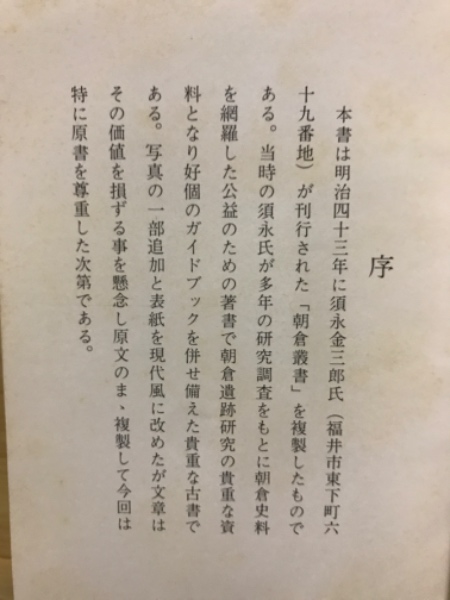 序
本書は明治四十三年に須永金三郎氏（福井市東下町六
十九番地）が刊行された「朝倉叢書」を複製したもので
ある。当時の須永氏が多年の研究調査をもとに朝倉史料
を網羅した公益のための著書で朝倉遺跡研究の貴重な資
料となり好個のガイドブックを併せ備えた貴重な古書で
ある。写真の一部追加と表紙を現代風に改めたが文章は
その価値を損ずる事を懸念し原文のまゝ複製して今回は
特に原書を尊重した次第である。